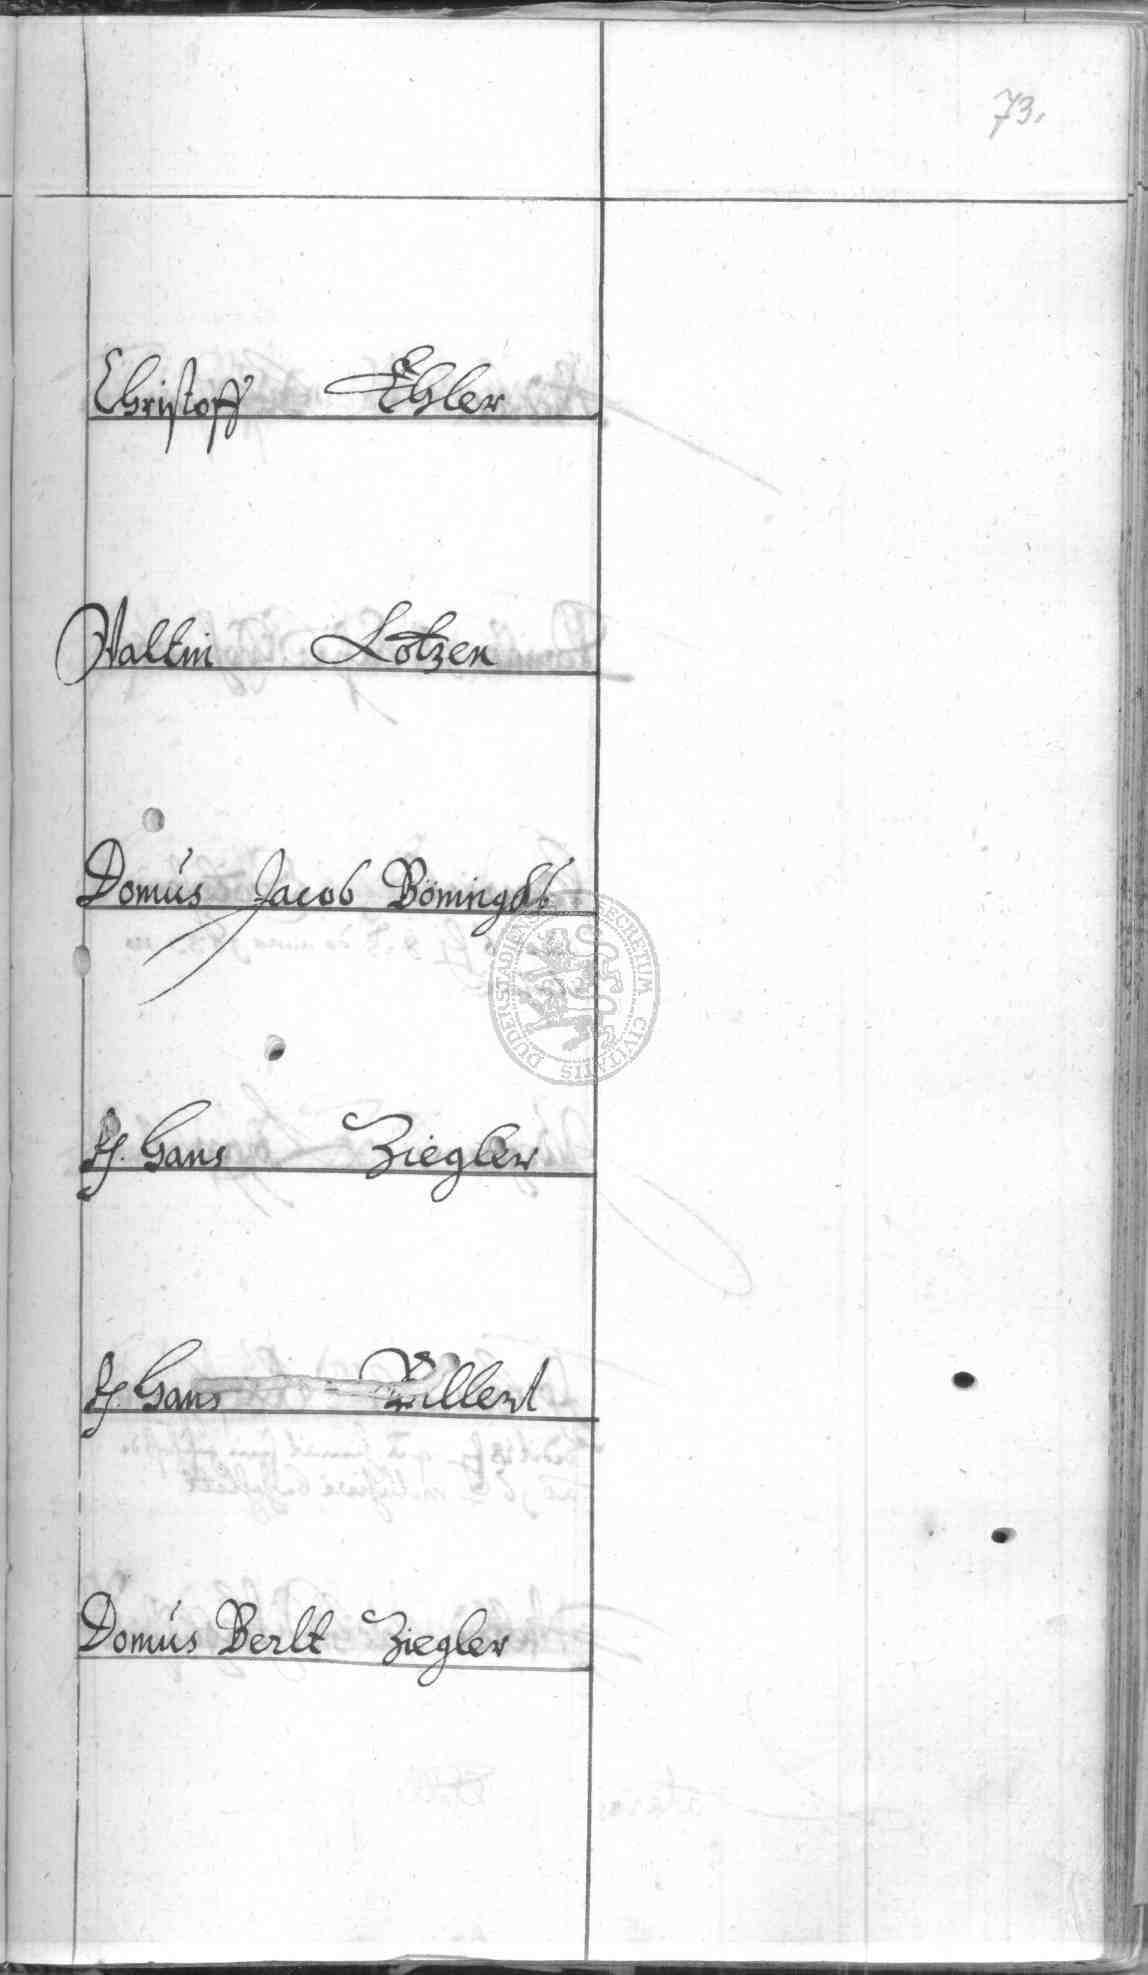 73.
Christoff Ehler
Valtin Lotzen
Domus Jacob
SECRETUM CIVITATIS DUDERSTADIENSIS
H. Hans Ziegler
H. Hans Willert
Domus Berlt Ziegler